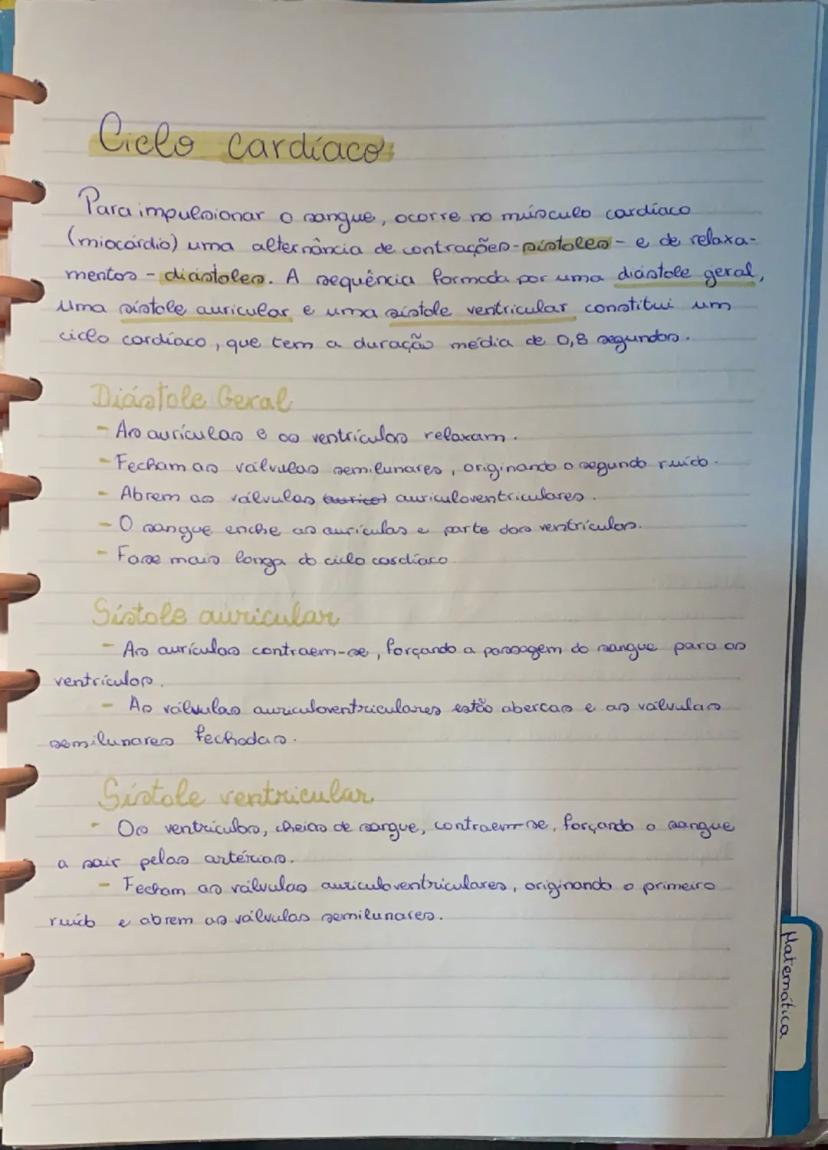 Ciclo cardíaco
Para impulsionar o sangue, ocorre no músculo cardíaco
(miocárdio) uma alternância de contrações - sístoles - e de relaxa-
mentos - diástoles. A sequência formada por uma diástole geral,
uma sístole auricular e uma sístole ventricular constitui um
ciclo cardíaco, que tem a duração média de 0,8 segundos.
Diástole Geral
- As aurículas e os ventrículos relaxam.
- Fecham as válvulas semilunares, originando o segundo ruído.
- Abrem as válvulas auriculoventriculares.
- O sangue enche as aurículas e parte dos ventrículos.
- Fase mais longa do ciclo cardíaco
Sístole auricular
- As aurículas contraem-se, forçando a passagem do sangue para os
ventrículos.
- As válvulas auriculoventriculares estão abertas e as válvulas
semilunares fechadas.
Sístole ventricular
- Os ventrículos, cheios de sangue, contraem-se, forçando o sangue
a sair pelas artérias.
- Fecham as válvulas auriculoventriculares, originando o primeiro
ruído e abrem as válvulas semilunares.
Matemática